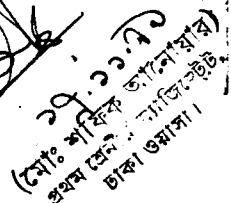 ১৭.১১.২১
(মোঃ শফিক আনোয়ার)
প্রথম শ্রেণীর ম্যাজিস্ট্রেট
ঢাকা ওয়াসা।